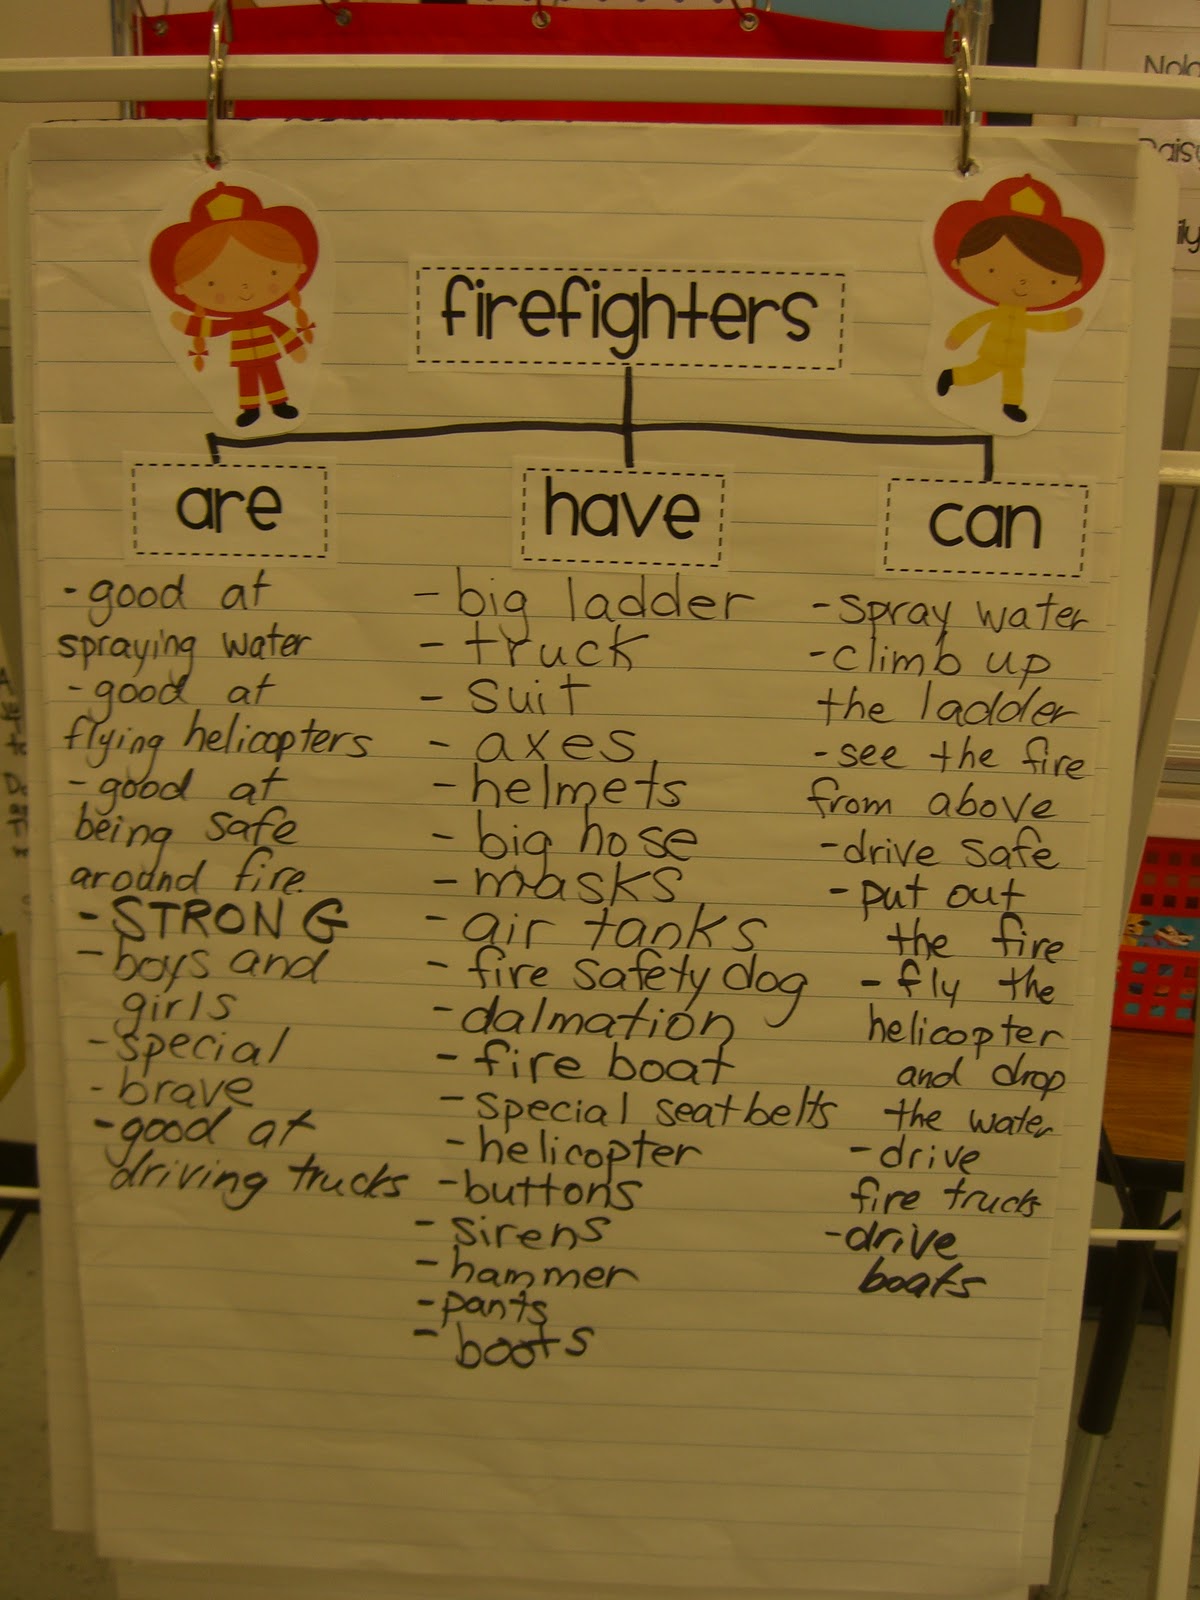 firefighters
are
have
can
-good at
spraying water
-good at
flying helicopters
-good at
being safe
around fire
-STRONG
-boys and
girls
-special
-brave
-good at
driving trucks
-big ladder
-truck
-suit
-axes
-helmets
-big hose
-masks
-air tanks
-fire safety dog
-dalmation
-fire boat
-special seatbelts
-helicopter
-buttons
-sirens
-hammer
-pants
-boots
-spray water
-climb up
the ladder
-see the fire
from above
-drive safe
-put out
the fire
-fly the
helicopter
and drop
the water
-drive
fire trucks
-drive
boats